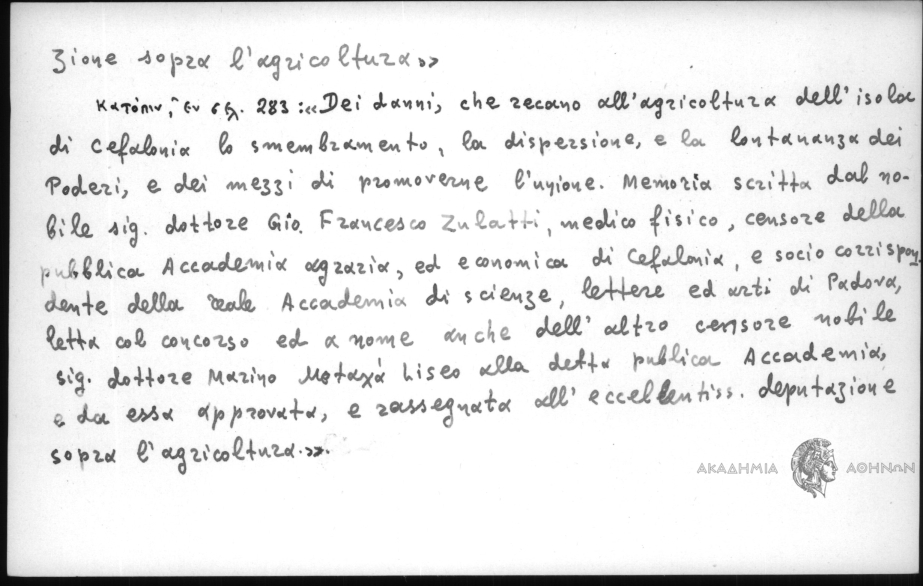 zione sopra l'agricoltura»
Κατόπιν, ἐν σελ. 283 :«Dei danni, che recano all'agricoltura dell'isola
di Cefalonia lo smembramento, la dispersione, e la lontananza dei
Poderi, e dei mezzi di promoverne l'unione. Memoria scritta dal no-
bile sig. dottore Gio. Francesco Zulatti, medico fisico, censore della
pubblica Accademia agraria, ed economica di Cefalonia, e socio corrispon-
dente della reale Accademia di scienze, lettere ed arti di Padova,
letta col concorso ed a nome anche dell'altro censore nobile
sig. dottore Marino Metaxà Liseo alla detta publica Accademia,
e da essa approvata, e rassegnata all'eccellentiss. deputazione
sopra l'agricoltura.».
ΑΚΑΔΗΜΙΑ ΑΘΗΝΩΝ